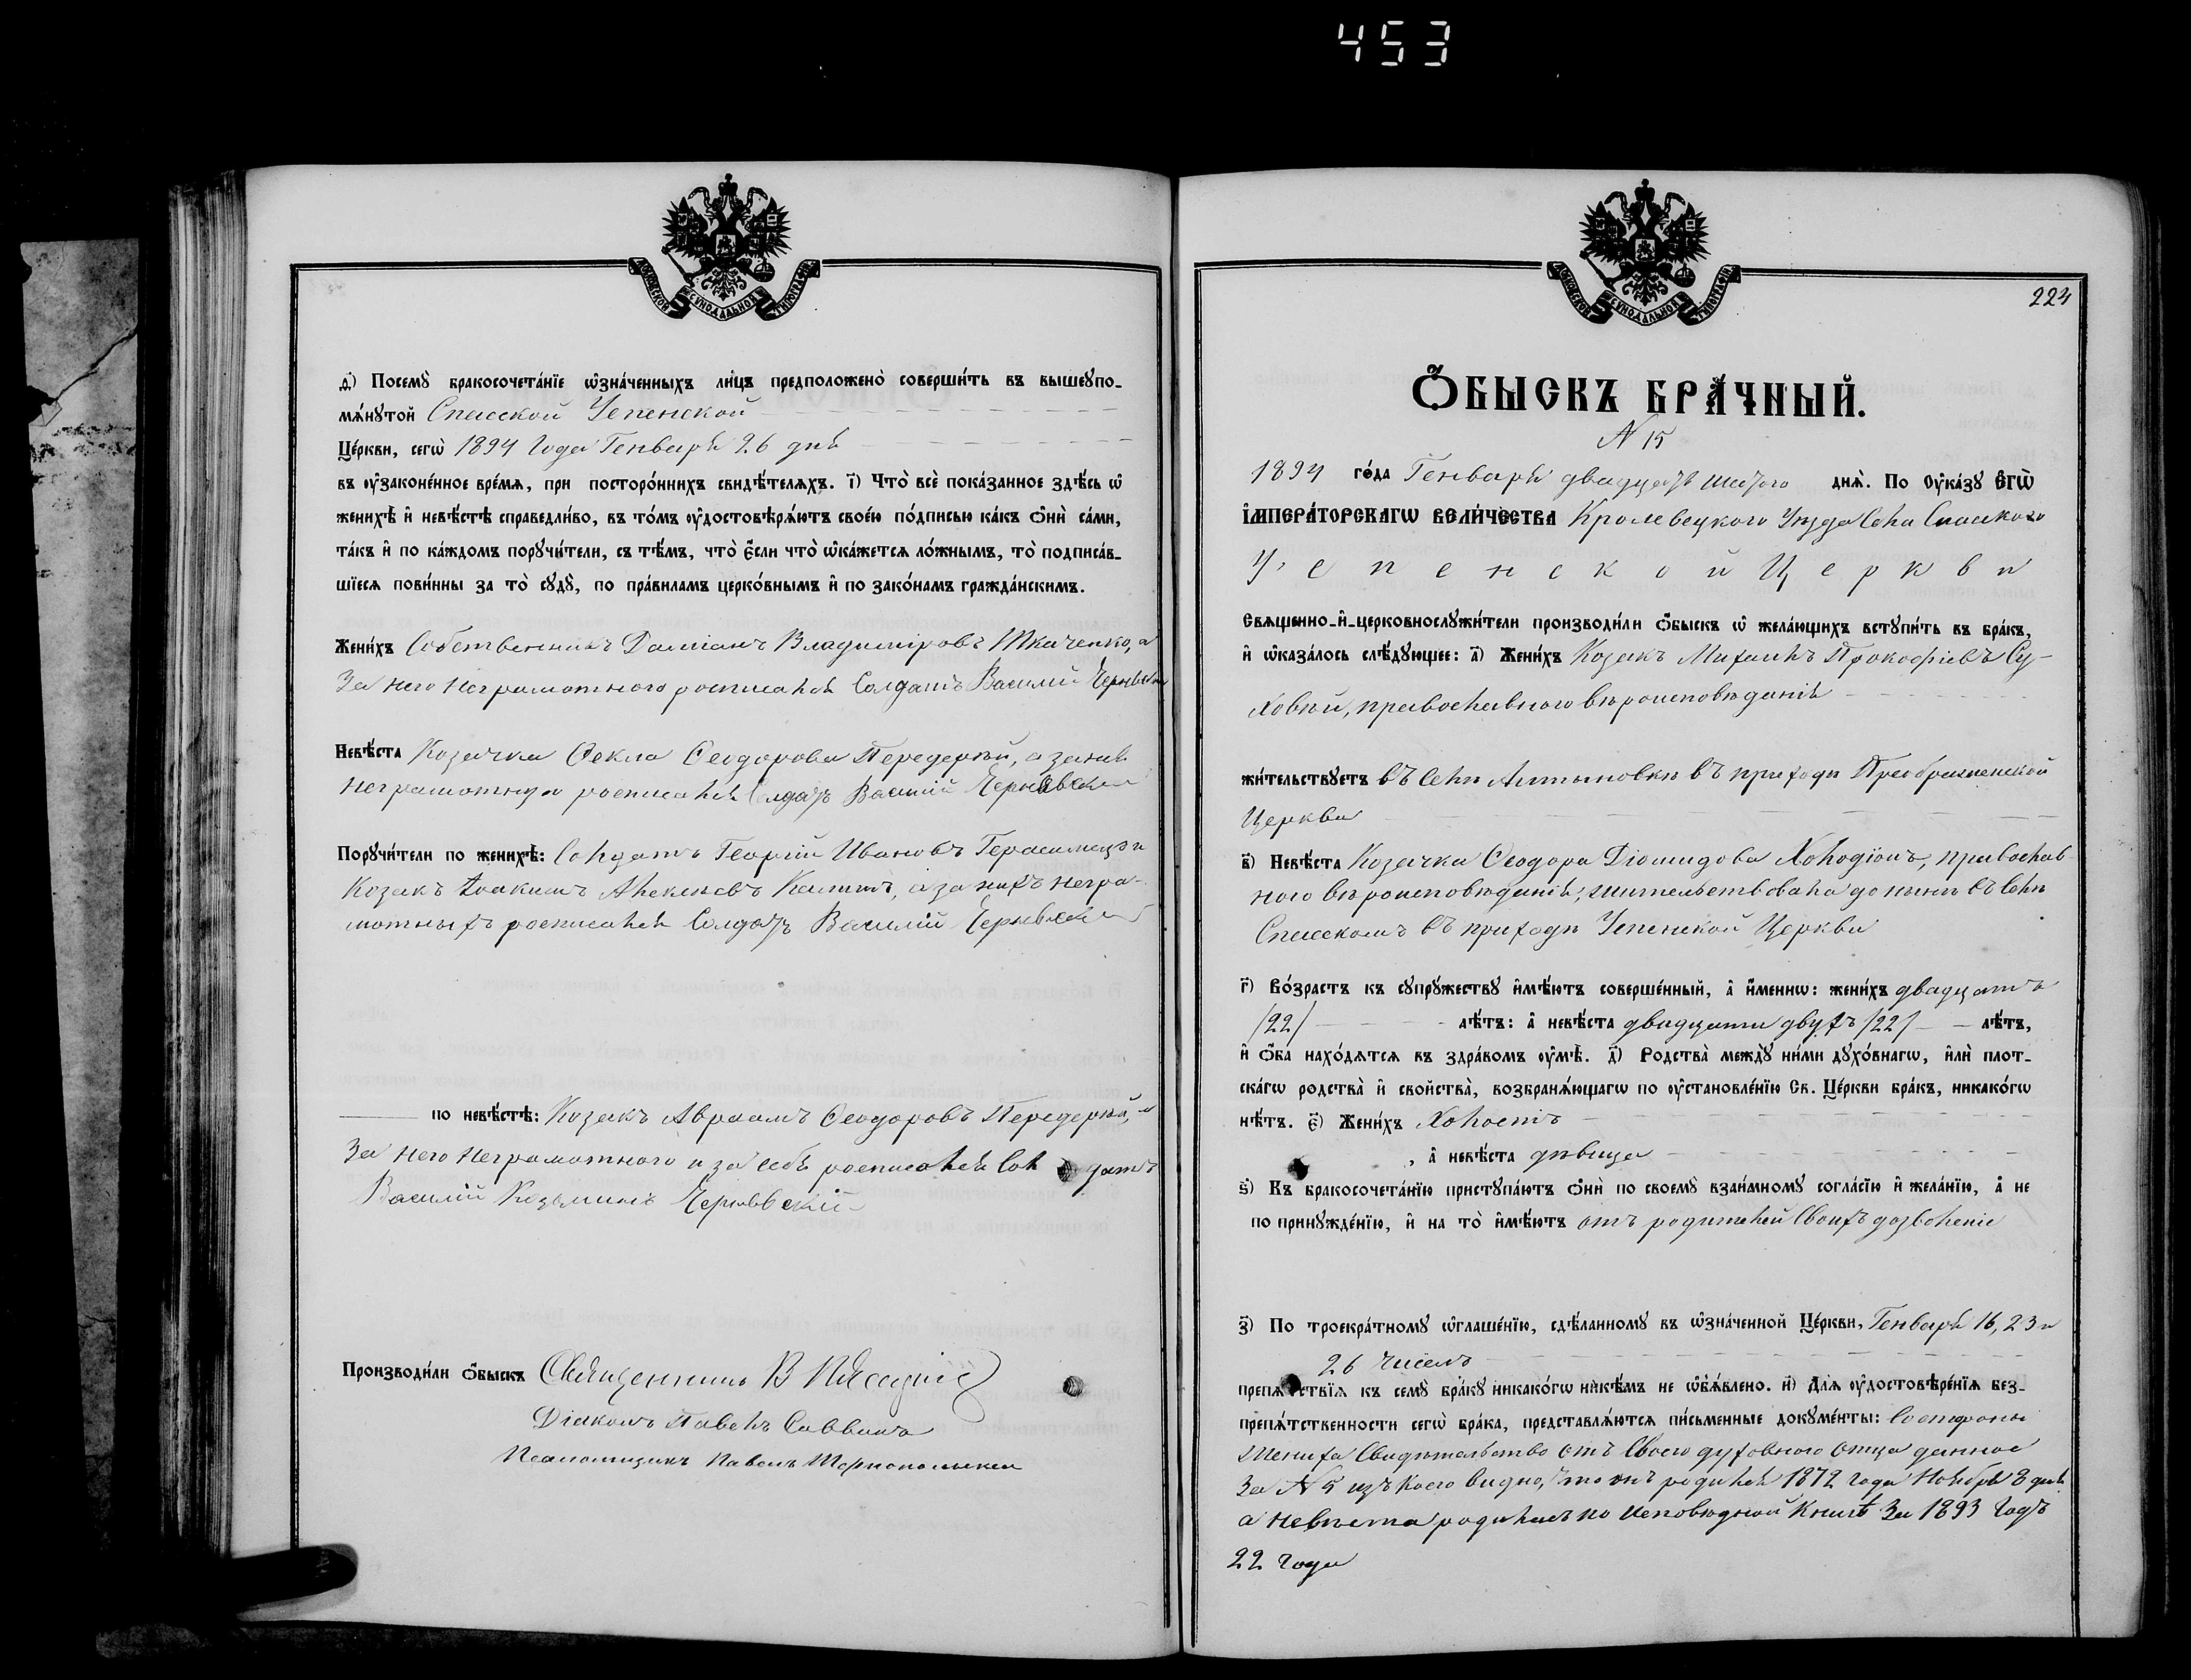 453
МОСКОВСКОЙ СУНОДАЛЬНОЙ ТИПОГРАФІИ
д҃) Посемꙋ̀ бракосочета́нїе ѡ҆зна́ченныхъ ли́цъ предположено̀ соверши́ть въ вышеꙋпо-
мѧ́нꙋтой Спасской Успенской
Це́ркви, сегѡ̀ 1894 года Генваря 26 дня
въ ѹ҆законе́нное вре́мѧ, при посторо́ннихъ свидѣ́телѧхъ. і҃) Что̀ всѐ пока́занное здѣ́сь ѡ҆
женихѣ̀ и҆ невѣ́стѣ справедли́во, въ то́мъ ѹ҆достовѣрѧ́ютъ свое́ю по́дписью ка́къ ѻ҆нѝ са́ми,
та́къ и҆ по ка́ждомъ порꙋчи́тели, съ тѣ́мъ, что̀ є҆́сли что̀ ѡ҆ка́жетсѧ ло́жнымъ, то̀ подписа́в-
шїесѧ пови́нны за то̀ сꙋдꙋ̀, по пра́виламъ церко́внымъ и҆ по зако́намъ гражда́нскимъ.
Жени́хъ Собственникъ Даміанъ Владиміровъ Ткаченко, а
за него неграмотного росписался Солдатъ Василій
Невѣ́ста Козачка Ѳекла Ѳеодорова Передерій, а за нея
неграмотную росписался Солдатъ Василій
Порꙋчи́тели по женихѣ̀: Солдатъ Георгій Ивановъ Герасимецъ и
Козакъ Іоакимъ Алексѣевъ а за нихъ негра-
мотныхъ росписался Солдатъ Василій
по невѣ́стѣ: Козакъ Авраамъ Ѳеодоровъ Передерій, а
за него неграмотного и за себя росписался Сол датъ
Василій Козьминъ
Производи́ли ѻ҆́быскъ Священникъ В
Діаконъ Павелъ Саввинъ
Псаломщикъ Павелъ
МОСКОВСКОЙ СУНОДАЛЬНОЙ ТИПОГРАФІИ
224
Ѻ҆́БЫСКЪ БРА́ЧНЫЙ.
N 15
1894 го́да Генваря двадцать шестого днѧ̀. По Ѹ҆ка́зꙋ Є҆гѡ̀
І҆МПЕРА́ТОРСКАГѠ ВЕЛИ́ЧЕСТВА Кролевецкого Уѣзда Села Спасского
Успенской Церкви
Свѧщенно-и҆-церковнослꙋжи́тели производи́ли ѻ҆́быскъ ѡ҆ жела́ющихъ встꙋпи́ть въ бра́къ,
и҆ ѡ҆каза́лось слѣ́дꙋющее: а҃) Жени́хъ Козакъ Михаилъ Прокофіевъ Су-
ховѣй, православного вѣроисповѣданія
жи́тельствꙋетъ въ Селѣ Алтыновкѣ въ приходѣ Преображенской
Церкви
в҃) Невѣ́ста Козачка Ѳеодора Діомидова Холодіонъ, православ-
ного вѣроисповѣданія, жительствовала до нынѣ въ Селѣ
Спасскомъ въ приходѣ Успенской Церкви
г҃) Во́зрастъ къ сꙋпрꙋ́жествꙋ и҆мѣ́ютъ соверше́нный, а҆ и҆́менно: жени́хъ двадцать
/22/ лѣ́тъ: а҆ невѣ́ста двадцати двухъ /22/ лѣ́тъ,
и҆ ѻ҆́ба нахо́дѧтсѧ въ здра́вомъ ѹ҆мѣ̀. д҃) Родства̀ междꙋ̀ ни́ми дꙋхо́внагѡ, и҆лѝ плот-
ска́гѡ родства̀ и҆ свойства̀, возбранѧ́ющагѡ по ѹ҆становле́нїю Св. Це́ркви бра́къ, никако́гѡ
нѣ́тъ. є҃) Жени́хъ Холостъ
, а҆ невѣ́ста дѣвица
ѕ҃) Къ бракосочета́нїю пристꙋпа́ютъ ѻ҆нѝ по своемꙋ̀ взаи́мномꙋ согла́сїю и҆ жела́нїю, а҆ не
по принꙋжде́нїю, и҆ на то̀ и҆мѣ́ютъ отъ родителей своихъ дозволеніе
з҃) По троекра́тномꙋ ѡ҆глаше́нїю, сдѣ́ланномꙋ въ ѡ҆зна́ченной Це́ркви, Генваря 16, 23 и
26 чиселъ
препѧ́тствїѧ къ семꙋ̀ бра́кꙋ никако́гѡ никѣ́мъ не ѡ҆б̾ѧ́влено. и҃) Длѧ̀ ѹ҆достовѣре́нїѧ без-
препѧ́тственности сегѡ̀ бра́ка, представлѧ́ютсѧ пи́сьменные докꙋме́нты: Со стороны
жениха Свидѣтельство отъ своего духовного отца данное
за N 5 изъ коего видно, что онъ родился 1872 года Ноября 8 дня
а невѣста родилась по исповѣдной книгѣ за 1893 годъ
22 года